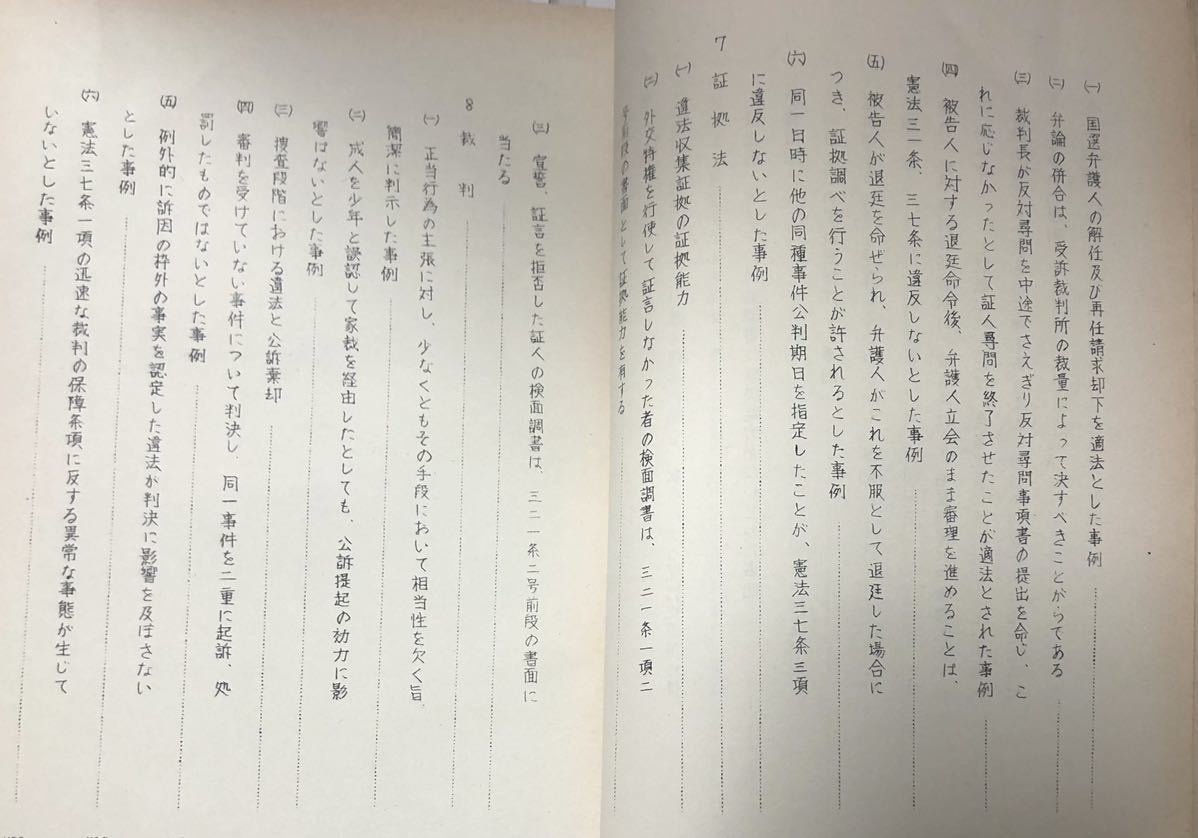 ㈠ 国選弁護人の解任及び再任請求却下を適法とした事例
㈡ 弁論の併合は、受訴裁判所の裁量によって決すべきことがらである
㈢ 裁判長が反対尋問を中途でさえぎり反対尋問事項書の提出を命じ、こ
れに応じなかったとして証人尋問を終了させたことが適法とされた事例
㈣ 被告人に対する退廷命令後、弁護人立会のまま審理を進めることは、
憲法三一条、三七条に違反しないとした事例
㈤ 被告人が退廷を命ぜられ、弁護人がこれを不服として退廷した場合に
つき、証拠調べを行うことが許されるとした事例
㈥ 同一日時に他の同種事件公判期日を指定したことが、憲法三七条三項
に違反しないとした事例
7 証拠法
㈠ 違法収集証拠の証拠能力
㈡ 外交特権を行使して証言しなかった者の検面調書は、三二一条一項二
号前段の書面として証拠能力を有する
㈢ 宣誓、証言を拒否した証人の検面調書は、三二一条二号前段の書面に
当たる
8 裁判
㈠ 正当行為の主張に対し、少なくともその手段において相当性を欠く旨
簡潔に判示した事例
㈡ 成人を少年と誤認して家裁を経由したとしても、公訴提起の効力に影
響はないとした事例
㈢ 捜査段階における違法と公訴棄却
㈣ 審判を受けていない事件について判決し、同一事件を二重に起訴、処
罰したものではないとした事例
㈤ 例外的に訴因の枠外の事実を認定した違法が判決に影響を及ぼさない
とした事例
㈥ 憲法三七条一項の迅速な裁判の保障条項に反する異常な事態が生じて
いないとした事例